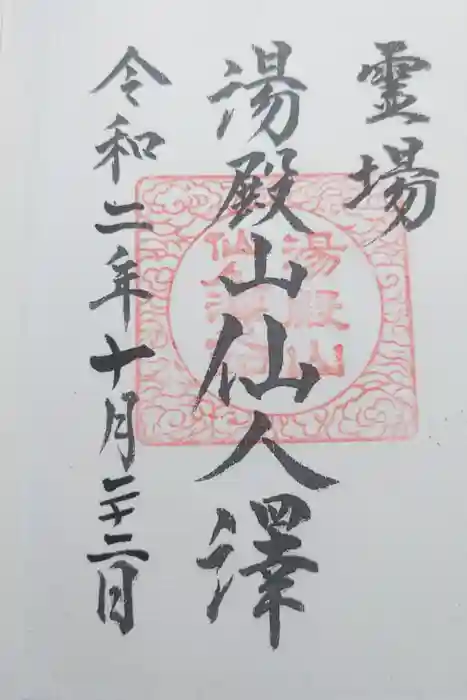 霊場
湯殿山仙人澤
令和二年十月二十二日
湯殿山
仙人澤